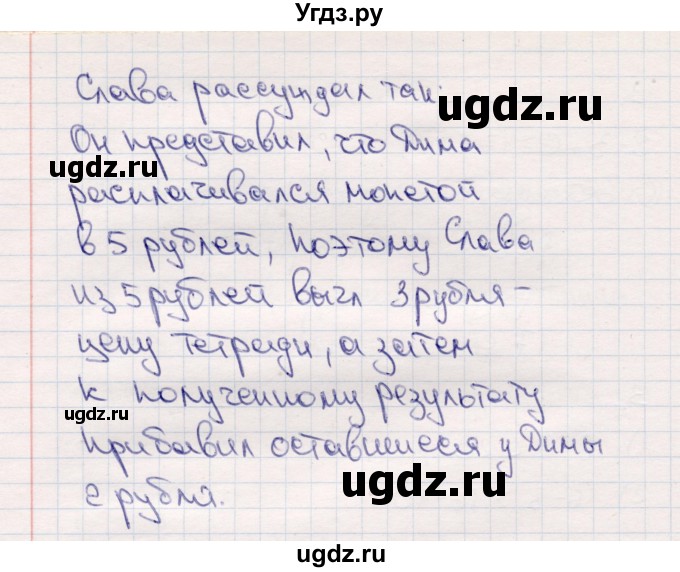 Угдз.ру
Слава рассуждал так:
ugdz.ru
Он представил, что Дима
ugdz.ru
расплачивался монетой
в 5 рублей, поэтому Слава
ugdz.ru
из 5 рублей вычл 3 рубля -
цену тетради, а затем
ugdz.ru
к полученному результату
ugdz.ru
прибавил оставшиеся у Димы
2 рубля.
ugdz.ru
ugdz.ru